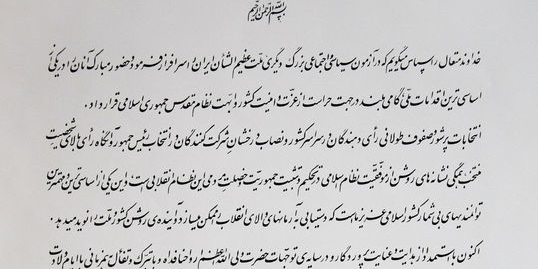 بسم الله الرحمن الرحیم
خداوند متعال را سپاس میگویم که در آزمون سیاسی و اجتماعی بزرگ دیگری ملت عظیم الشأن ایران را سرافراز فرمود و حضور مبارک آنان را در یکی از
اساسی ترین اقدامات ملی گامی بلند در جهت حراست از عزت و امنیت کشور و ابهت نظام مقدس جمهوری اسلامی قرار داد.
انتخابات پرشور و صفوف طولانی رأی دهندگان در سراسر کشور و نصاب درخشان شرکت کنندگان در انتخاب رئیس جمهور و آنگاه رأی بالای شخصیت
منتخب همگی نشانه های روشن از موفقیت نظام اسلامی در تحکیم و تثبیت جمهوریت و خصلت مردمی این نظام انقلابی است و این یکی از اساسی ترین و مهمترین
توانمندیهای بی شمار کشور اسلامی عزیز ما است که دستیابی به آرمانهای والای انقلاب را ممکن میسازد و آینده ی روشن کشور و ملت را نوید میدهد.
اکنون با استمداد از هدایت و عنایت پروردگار و در سایه ی توجهات حضرت بقیة الله اعظم روحنا فداه و با تبرک و تفأل به همزمانی با ایام ولادت